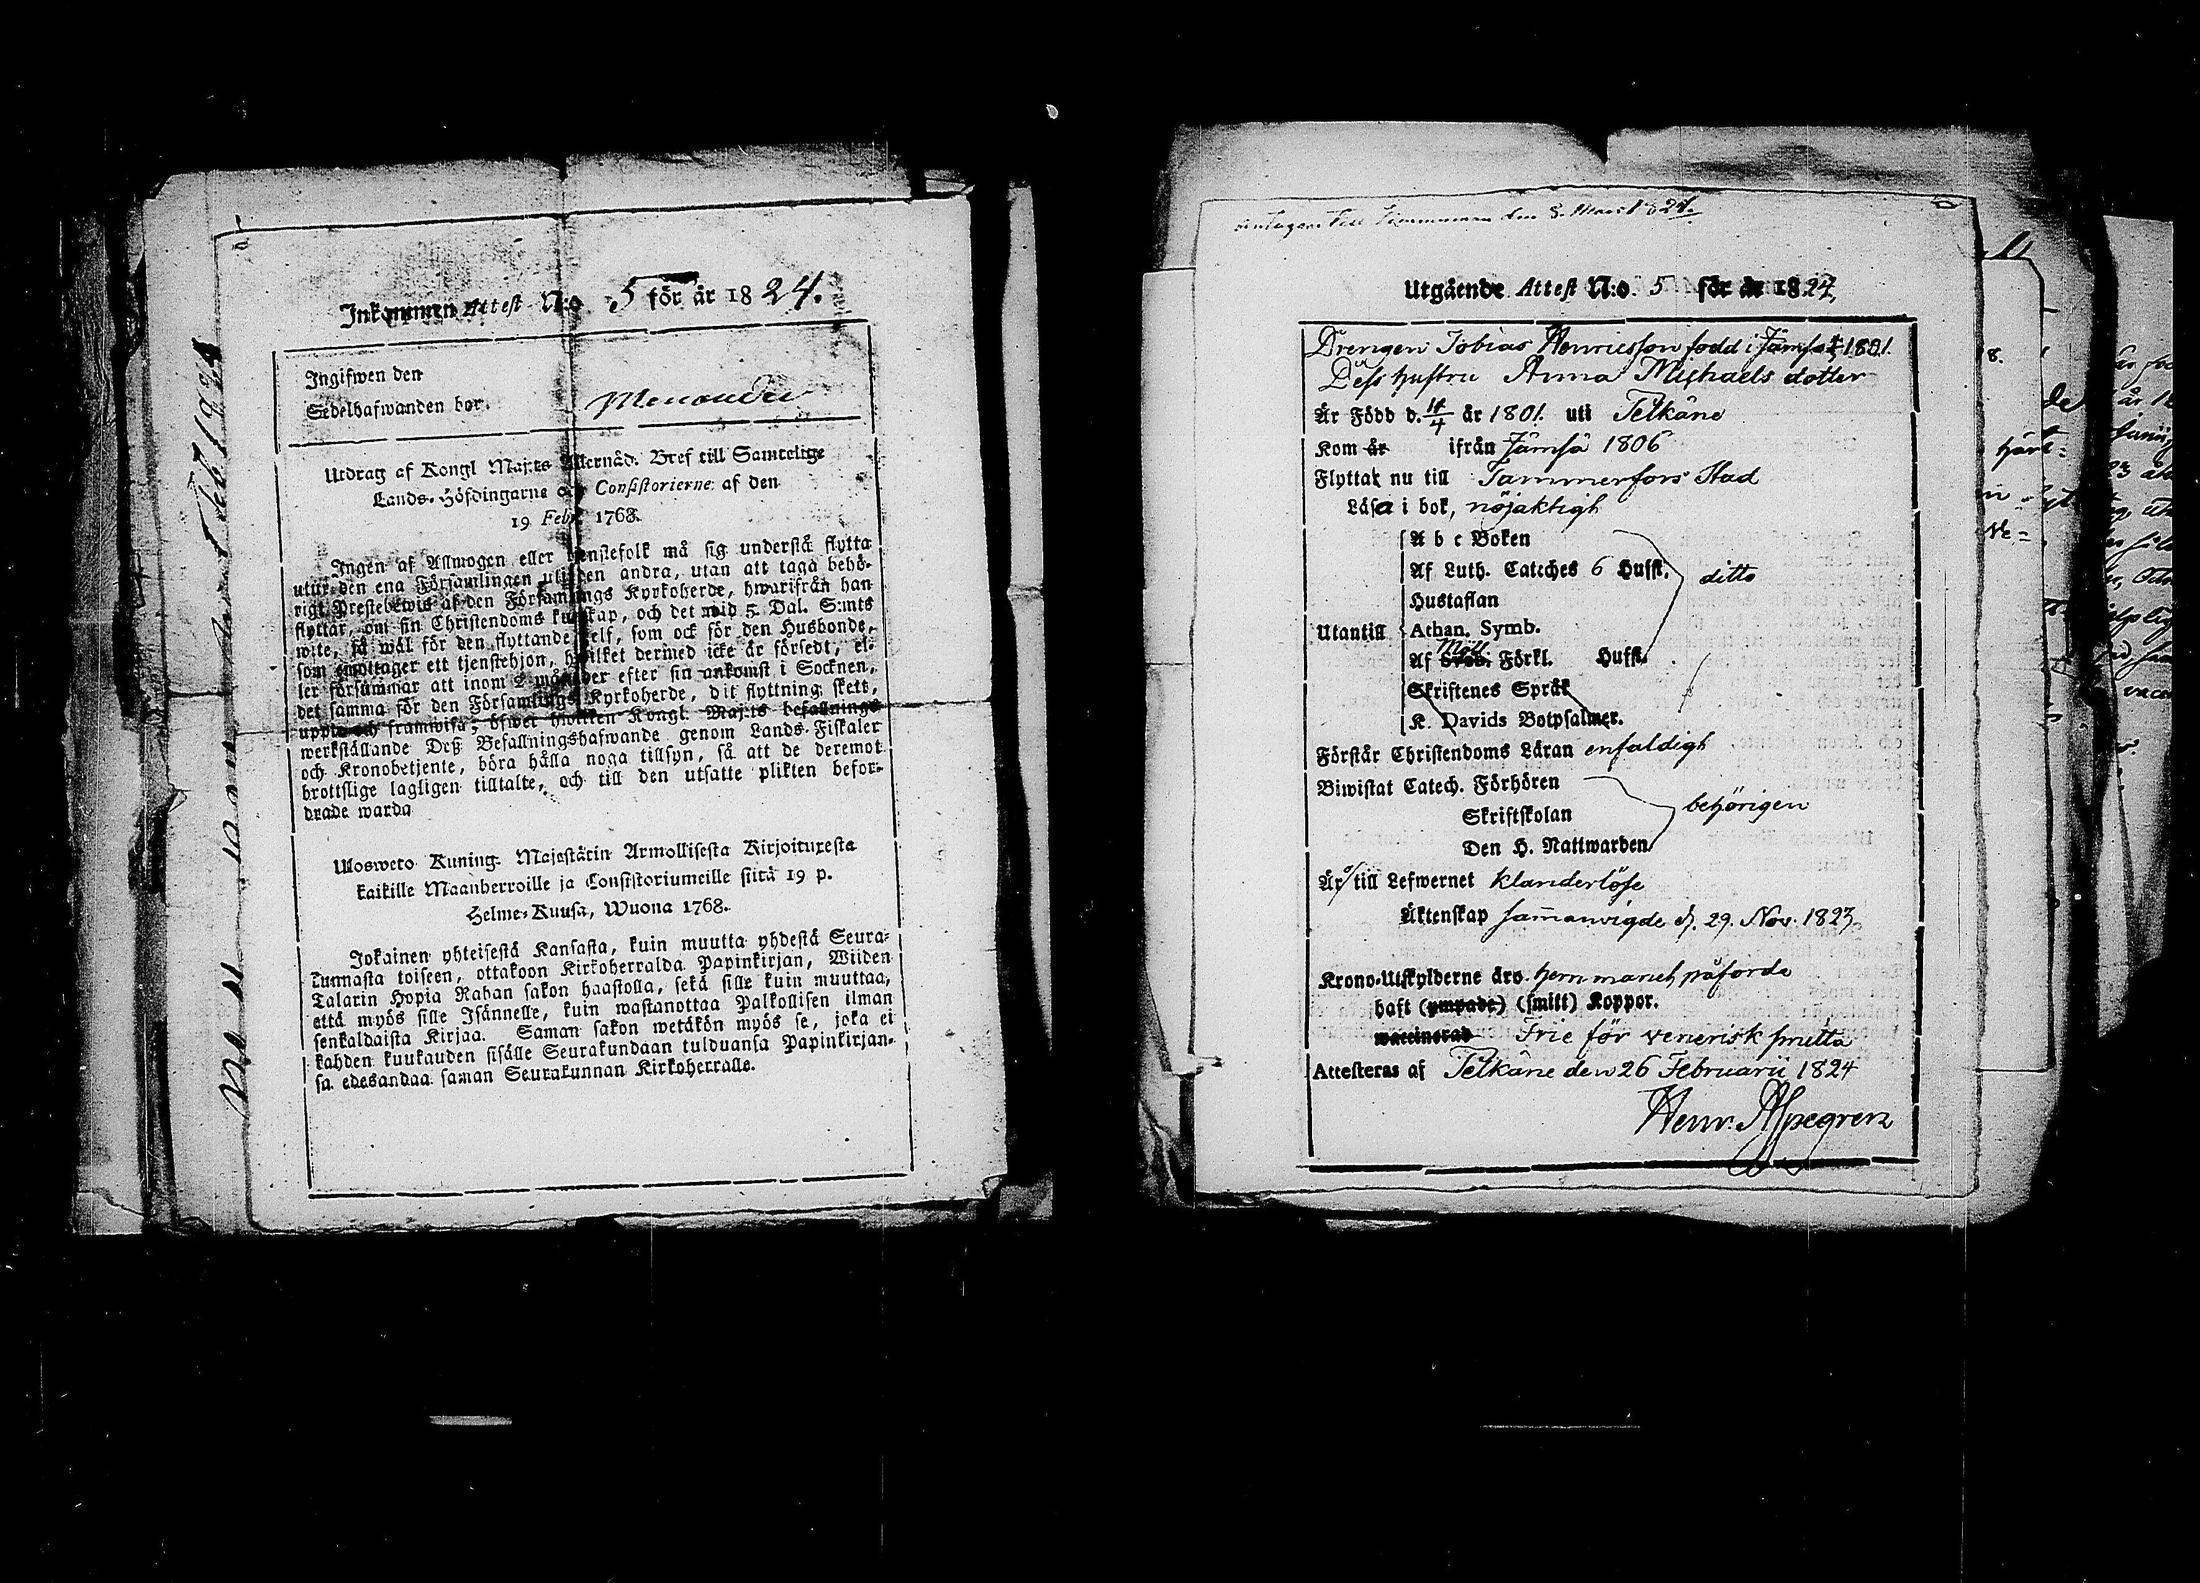 Inkommen Attest N:o 5 för år 1824.
Ingifwen den
Sedelhafwanden bor.
Utdrag af Kongl Maj:ts Allernåd. Bref till Samtelige
Lands-Höfdingarne och Consistorierne af den
19 Febr. 1768.
Ingen af Allmogen eller tjenstefolk må sig understå flytta
utur den ena Församlingen uti den andra, utan att taga behö-
rigt Prestebewis af den Församlings Kyrkoherde, hwarifrån han
flyttar, om sin Christendoms kunskap, och det wid 5. Dal. S:mts
wite, så wäl för den flyttande self, som ock för den Husbonde,
som emottager ett tjenstehjon, hwilket dermed icke är försedt, el-
ler försummar att inom 2 månader efter sin ankomst i Socknen,
det samma för den Församlings Kyrkoherde, dit flyttning skett,
uppte och framwisa; öfwer hwilken Kongl. Maj:ts befallnings
werkställande Deß Befallningshafwande genom Lands-Fiskaler
och Kronobetjente, böra hålla noga tillsyn, så att de deremot
brottslige lagligen tilltalte, och till den utsatte plikten befor-
drade warda
Ulosweto Kuning. Majestätin Armollisesta Kirjoituxesta
kaikille Maanherroille ja Consistoriumeille siitä 19 p.
Helme-Kuusa, Wuona 1768.
Jokainen yhteisestä Kansasta, kuin muutta yhdestä Seura-
kunnasta toiseen, ottakoon Kirkoherralda Papinkirjan, Wiiden
Talarin Hopia Rahan sakon haastolla, sekä sille kuin muuttaa,
että myös sille Isännelle, kuin wastanottaa Palkollisen ilman
senkaldaista Kirjaa. Saman sakon wetäkön myös se, joka ei
kahden kuukauden sisälle Seurakundaan tulduansa Papinkirjan-
sa edesandaa saman Seurakunnan Kirkoherralle.
Utgående Attest N:o. 5 för år 1824,
Drengen Tobias Henricsson född i Jämsä 1801.
Dess hustru Anna Michaelsdotter
Är Född d. 11/4 år 1801. uti Pelkäne
Kom år ifrån Jämsä 1806
Flyttar nu till Tammerfors Stad
Läsa i bok, nöjaktigt
A b c Boken
Af Luth. Cateches 6 Hufst. ditto
Hustaflan
Utantill Athan. Symb.
Af Sveb. Förkl. Hufst.
Skriftenes Språk
K. Davids Botpsalmer.
Förstår Christendoms Läran enfaldigt
Biwistat Catech. Förhören
Skriftskolan behörigen
Den H. Nattwarden
Är till Lefwernet klanderlöse
Äktenskap sammanvigde d. 29. Nov. 1823
Krono-Utskylderne äro hemmanet påförde
haft (ympade) (smitt) Koppor.
waccinerad Frie för venerisk smitta
Attesteras af Pelkäne den 26 Februarii 1824
Henr. Alpegren